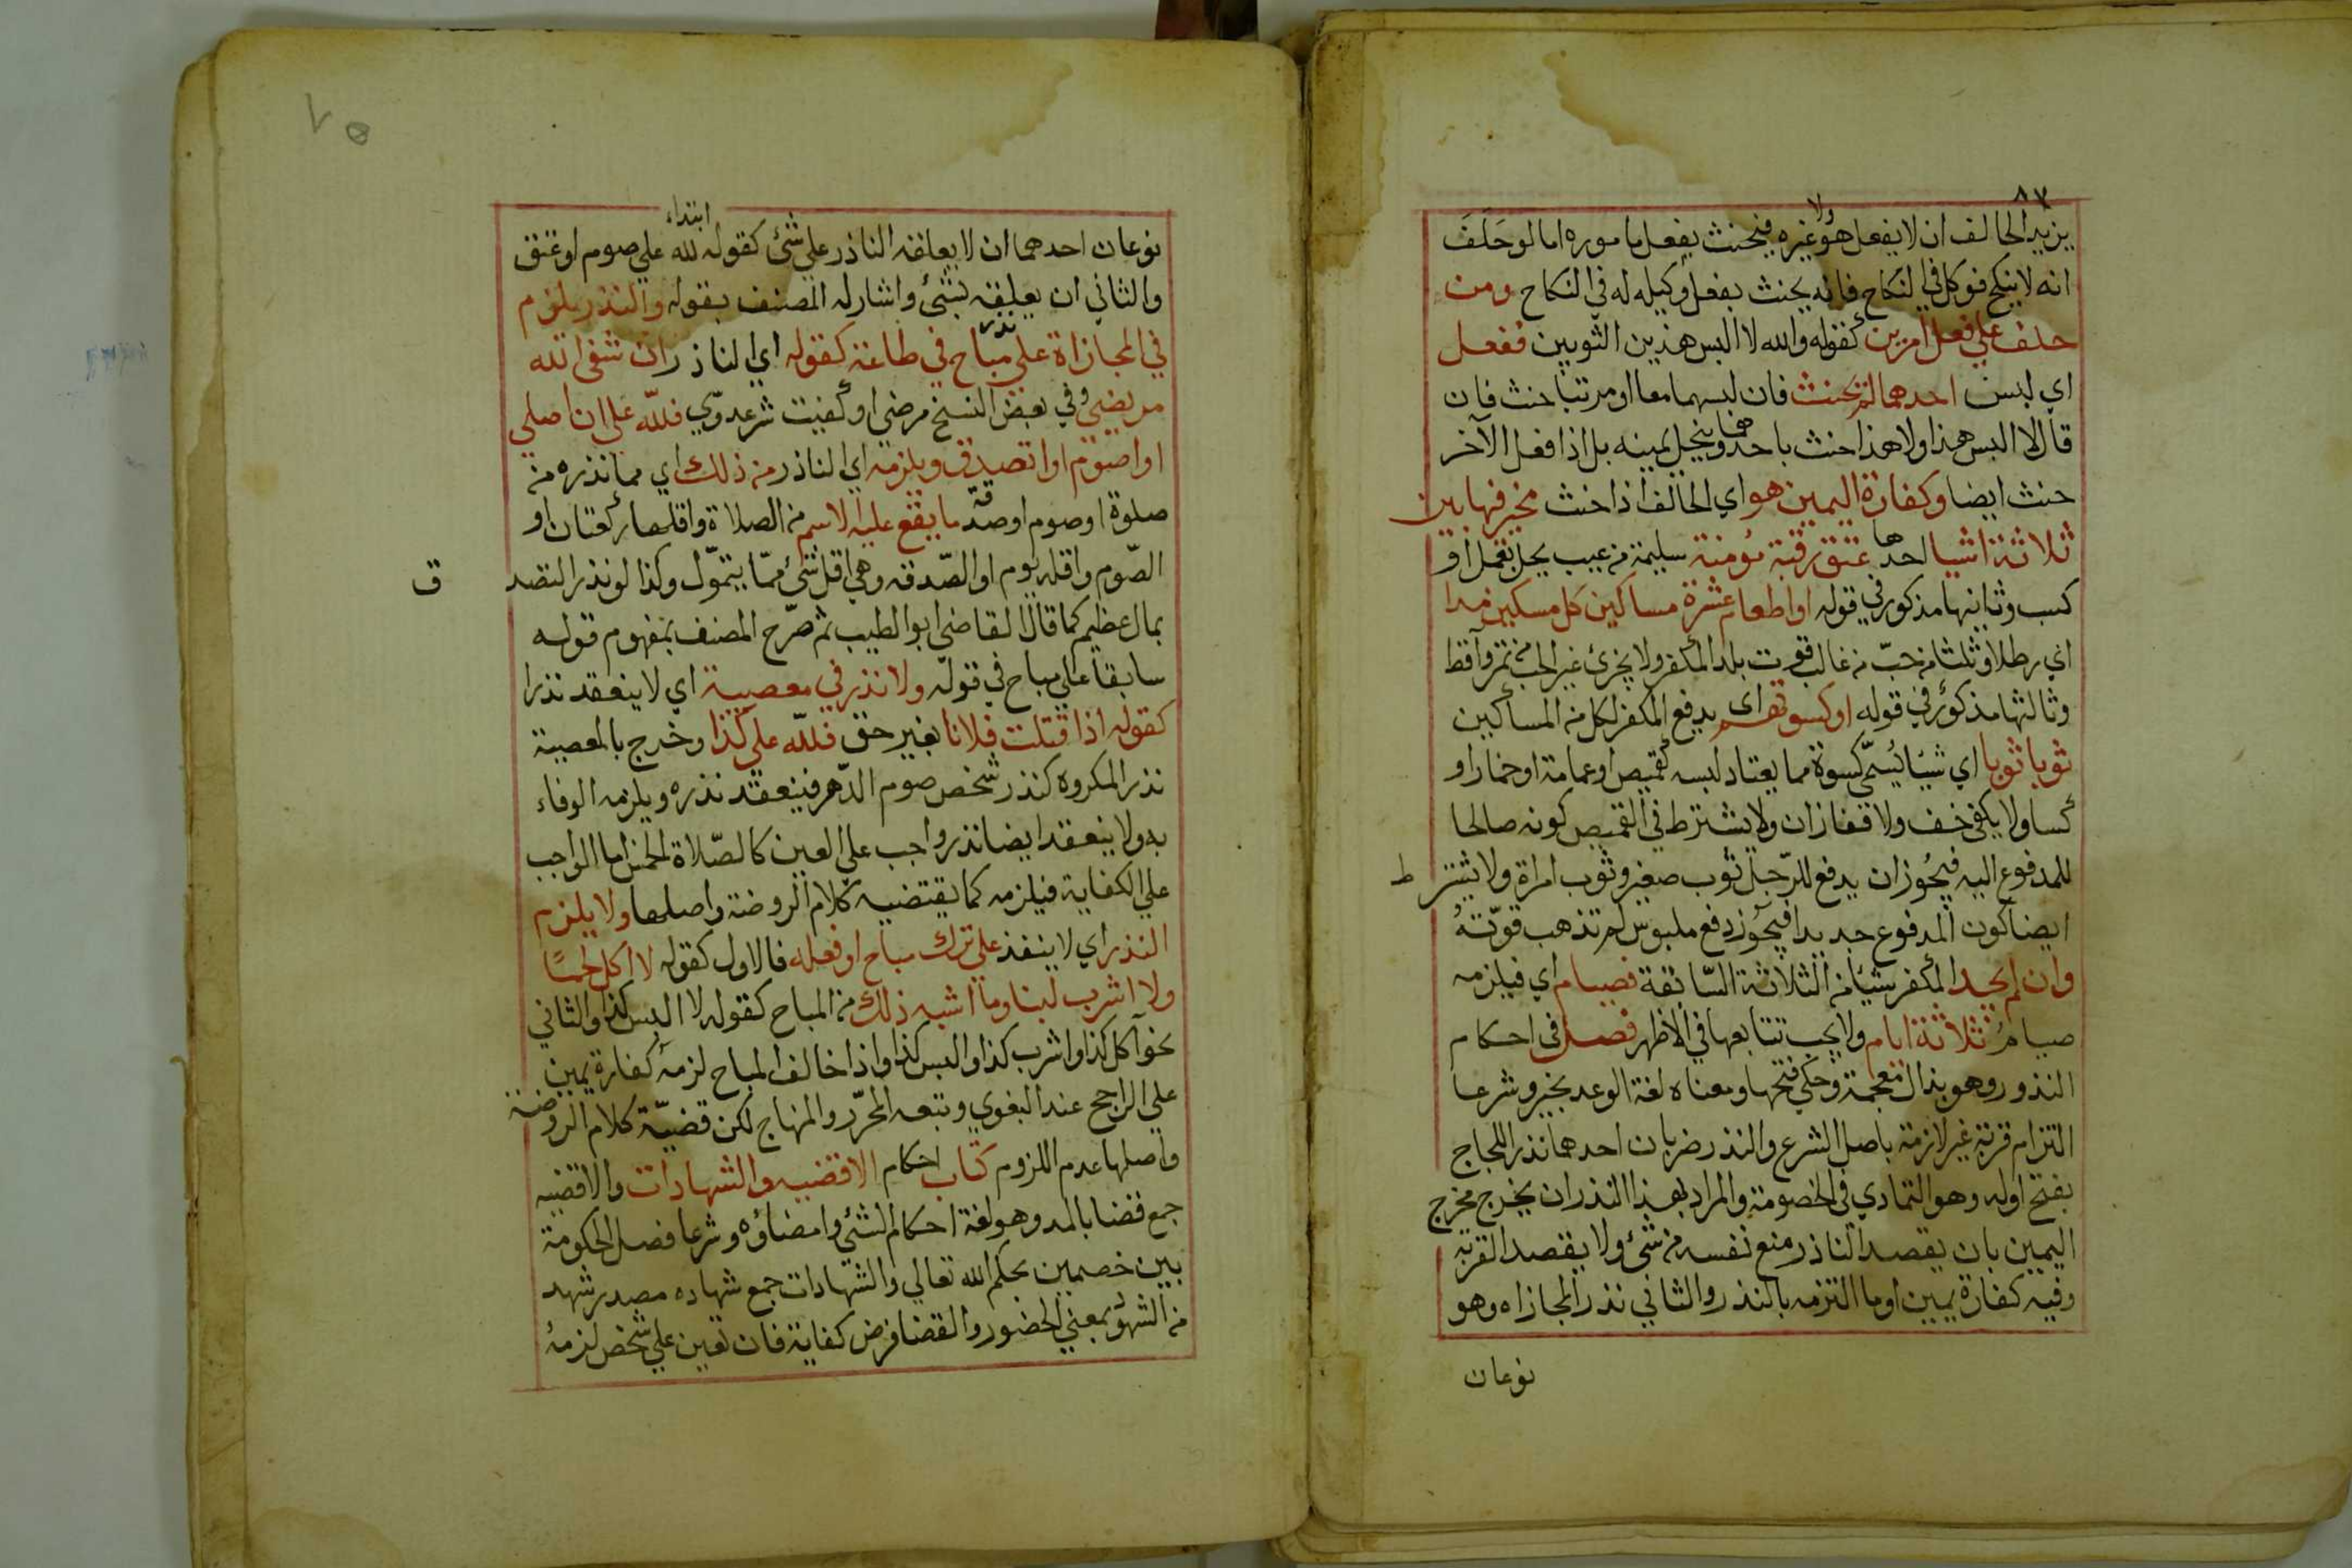 ٨٧
يزيد الحالف ان لا يفعل هو ولا غيره فيحنث بفعل ماموره اما لو حلف
انه لا ينكح فوكل في النكاح فانه يحنث بفعل وكيله له في النكاح ومن
حلف علي فعل امرين كقوله والله لا البس هذين الثوبين ففعل
اي لبس احدهما لم يحنث فان لبسهما معا او مرتبا حنث فان
قال لا البس هذا ولا هذا حنث باحدهما وينحل يمينه بل اذا فعل الآخر
حنث ايضا وكفارة اليمين هو اي الحالف اذا حنث مخير فيها بين
ثلاثة اشيا احدها عتق رقبة مؤمنة سليمة من عيب يخل بعمل او
كسب وثانيها مذكور في قوله او اطعام عشرة مساكين كل مسكين مدا
اي رطلا وثلثا من حب من غالب قوت بلد المكفر ولا يجزئ غير الحب من تمر واقط
وثالثها مذكور في قوله او كسوتهم اي يدفع المكفر لكل من المساكين
ثوبا ثوبا اي شيئا يسمى كسوة مما يعتاد لبسه كقميص او عمامة او خمار او
كسا ولا يكفي خف ولا قفازان ولا يشترط في القميص كونه صالحا
للمدفوع اليه فيجوز ان يدفع للرجل ثوب صغير وثوب امراة ولا يشترط
ايضا كون المدفوع جديدا فيجوز دفع ملبوس لم تذهب قوته
وان لم يجد المكفر شيئا من الثلاثة السابقة فصيام اي فيلزمه
صيام ثلاثة ايام ولا يجب تتابعها في الاظهر فصل في احكام
النذور وهو بذال معجمة وحكي فتحها ومعناه لغة الوعد بخير وشرعا
التزام قربة غير لازمة باصل الشرع والنذر ضربان احدهما نذر اللجاج
بفتح اوله وهو التمادي في الخصومة والمراد بهذا النذر ان يخرج مخرج
اليمين بان يقصد الناذر منع نفسه من شئ ولا يقصد القربة
وفيه كفارة يمين او ما التزمه بالنذر والثاني نذر المجازاه وهو
نوعان
٧٥
نوعان احدهما ان لا يعلقه الناذر علي شئ كقوله ابتداء لله علي صوم او عتق
والثاني ان يعلقه بشئ واشار له المصنف بقوله والنذر يلزم
في المجازاة علي نذر مباح في طاعة كقوله اي الناذر ان شفى الله
مريضي وفي بعض النسخ مرضي او كفيت شر عدوّي فللّه علي ان اصلي
او اصوم او اتصدق ويلزمه اي الناذر من ذلك اي مما نذره من
صلوة او صوم او صدقة ما يقع عليه الاسم من الصلاة واقلها ركعتان او
الصّوم واقله يوم او الصّدقه وهي اقل شئ ممّا يتموّل وكذا لو نذر التصدق
بمال عظيم كما قال القاضي ابو الطيب ثم صرّح المصنف بمفهوم قوله
سابقا علي مباح في قوله ولا نذر في معصية اي لا ينعقد نذرا
كقوله اذا قتلت فلانا بغير حق فللّه علي كذا وخرج بالمعصية
نذر المكروه كنذر شخص صوم الدّهر فينعقد نذره ويلزمه الوفاء
به ولا ينعقد ايضا نذر واجب علي العين كالصّلاة الخمس اما الواجب
علي الكفاية فيلزمه كما يقتضيه كلام الروضة واصلها ولا يلزم
النذر اي لا ينفذ علي ترك مباح او فعله فالاول كقوله لا اكل لحمًا
ولا اشرب لبنا وما اشبه ذلك من المباح كقوله لا البس كذا والثاني
نحو آكل كذا واشرب كذا والبس كذا واذا خالف المباح لزمه كفارة يمين
علي الراجح عند البغوي وتبعه المحرّر والمنهاج لكن قضيّة كلام الروضة
واصلها عدم اللزوم كتاب احكام الاقضيه والشهادات والاقضيه
جمع قضا بالمد وهو لغة احكام الشئي وامضاؤه وشرعا فصل الحكومة
بين خصمين بحكم الله تعالي والشهادات جمع شهاده مصدر شهد
من الشهود بمعني الحضور والقضا فرض كفاية فان تعين علي شخص لزمه